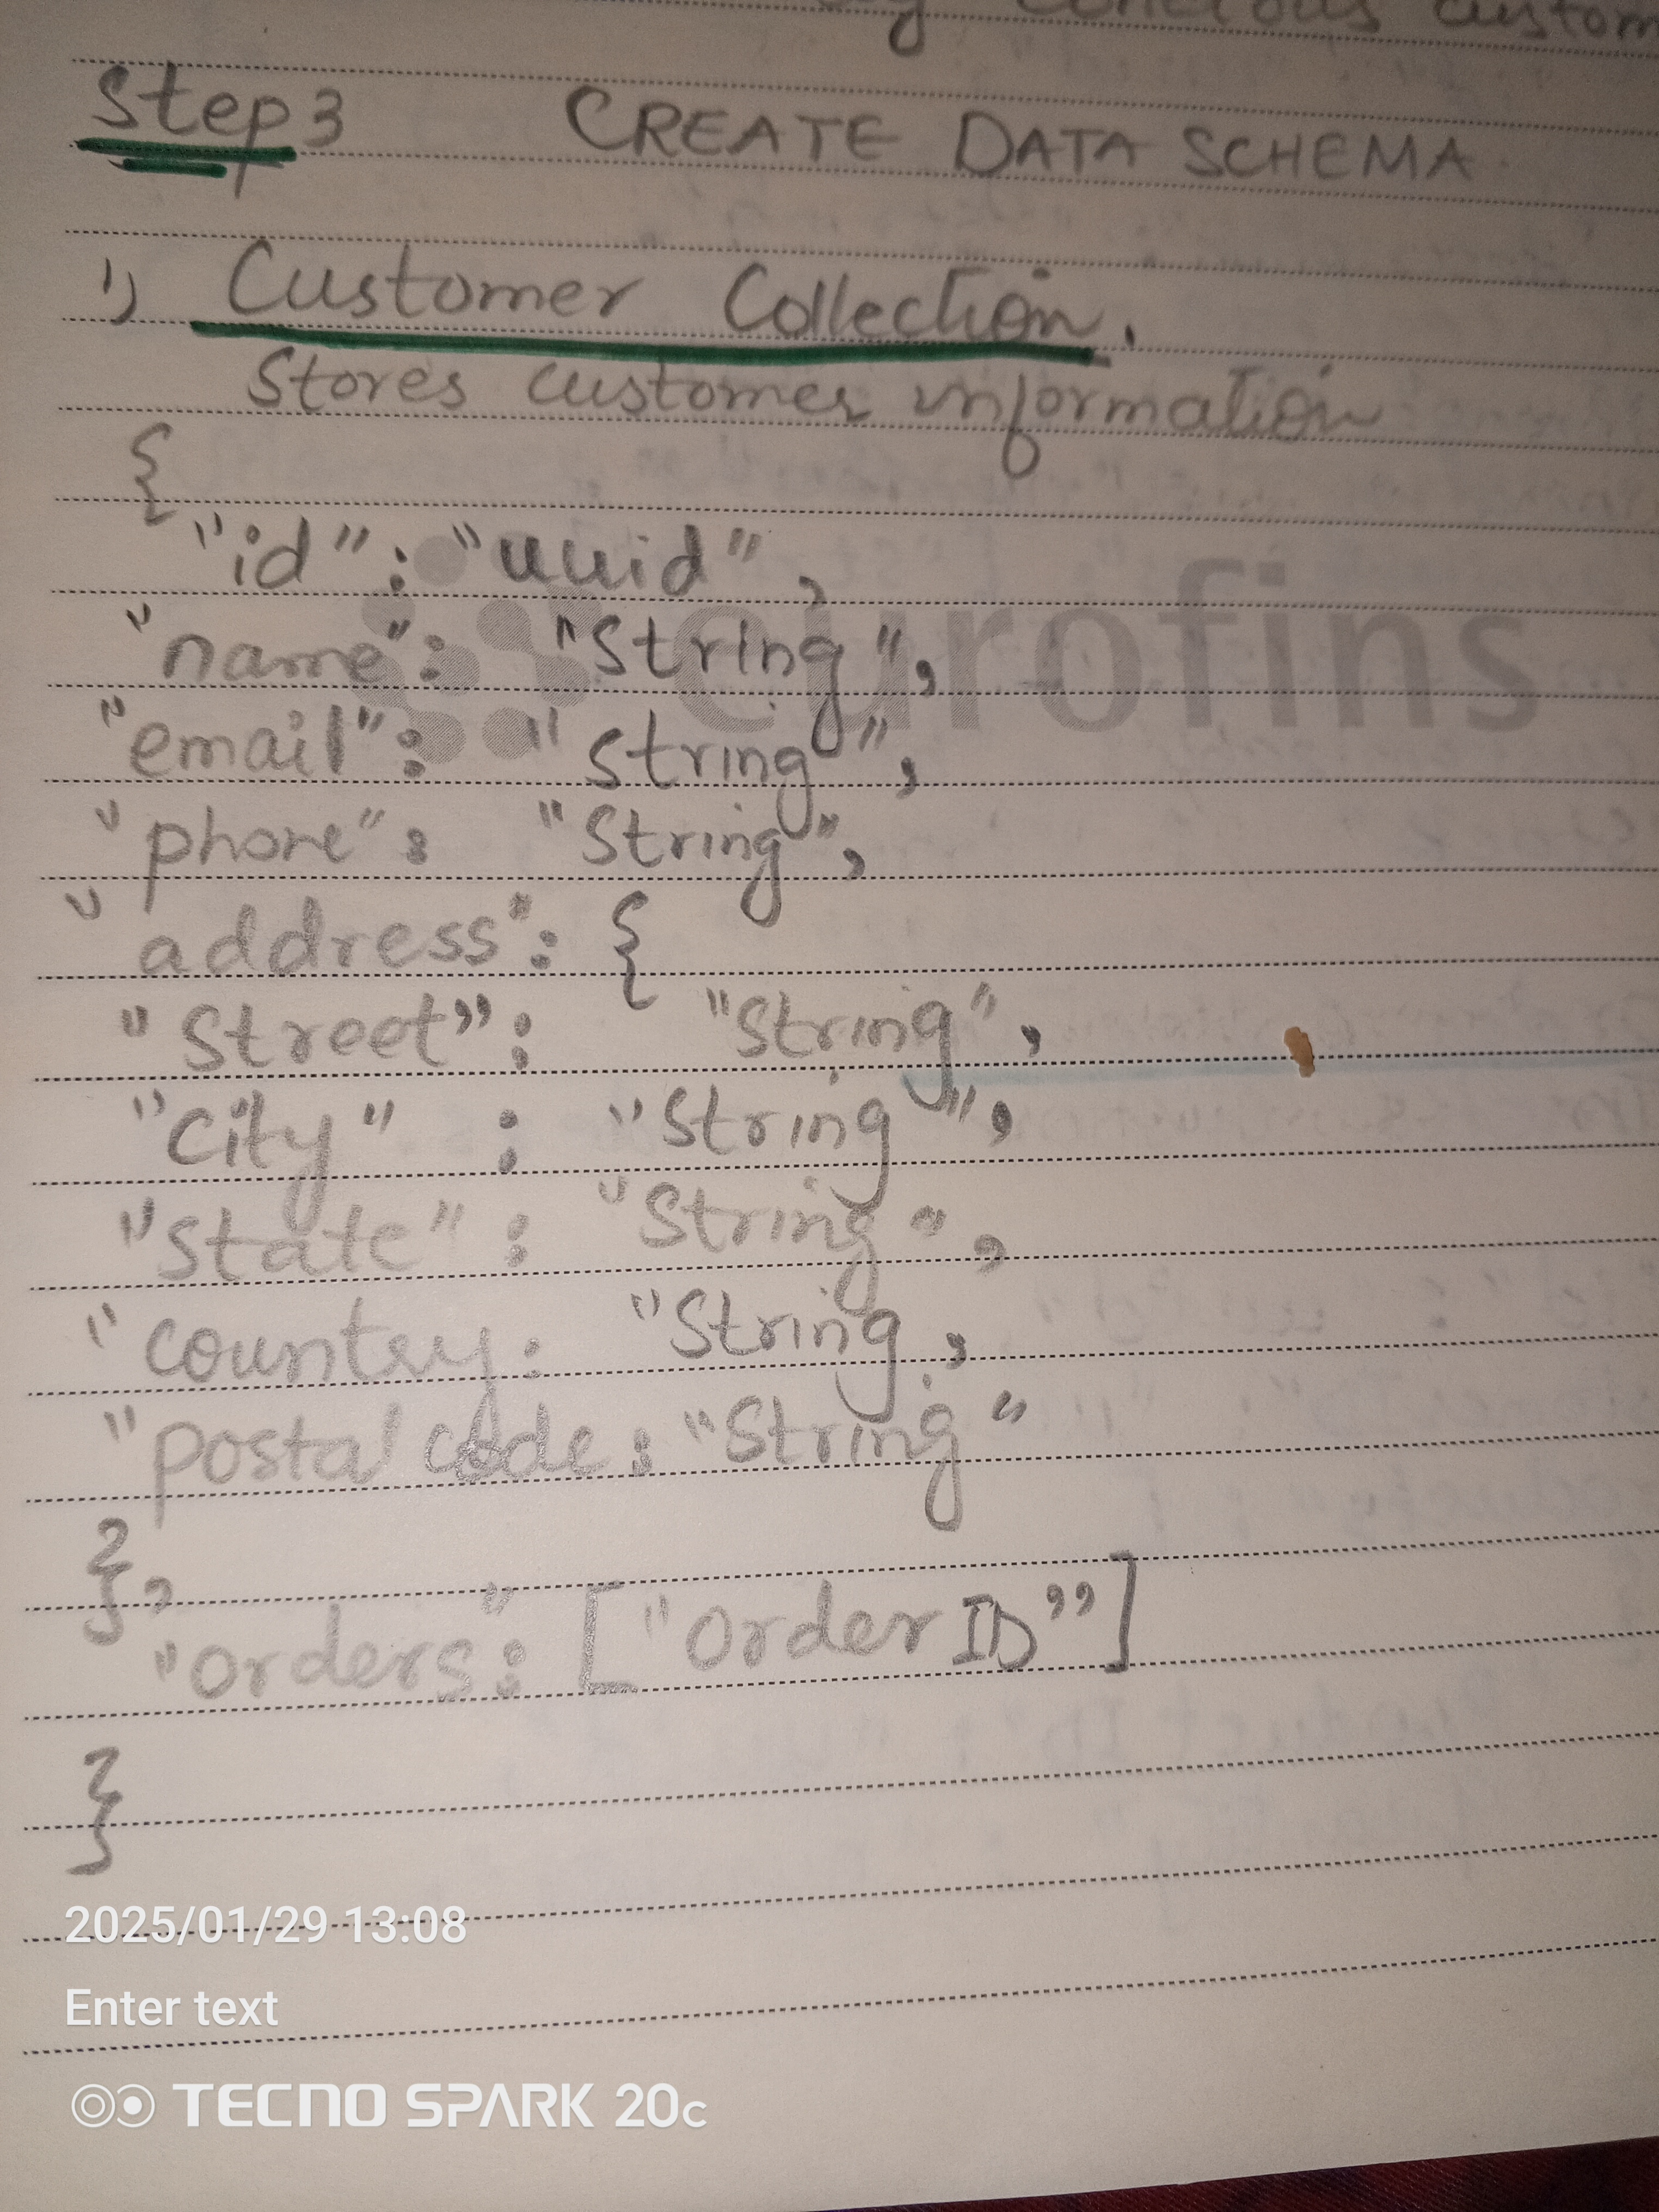 concious custom
Step 3 CREATE DATA SCHEMA
1) Customer Collection.
Stores customer information
{
"id": "uuid",
eurofins
"name": "String",
"email": "String",
"phone": "String",
"address": {
"Street": "String",
"City" : "String",
"State" : "String",
"country: "String,
"postal code: "String"
},
"orders": ["Order ID"]
}
2025/01/29 13:08
Enter text
TECNO SPARK 20c